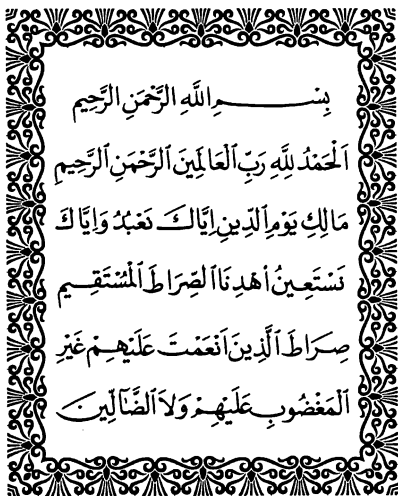 بِسْمِ اللَّهِ الرَّحْمَنِ الرَّحِيمِ
اَلْحَمْدُ لِلَّهِ رَبِّ الْعَالَمِينَ الرَّحْمَنِ الرَّحِيمِ
مَالِكِ يَوْمِ الدِّينِ اِيَّاكَ نَعْبُدُ وَاِيَّاكَ
نَسْتَعِينُ اُهْدِنَا الصِّرَاطَ الْمُسْتَقِيمَ
صِرَاطَ الَّذِينَ اَنْعَمْتَ عَلَيْهِمْ غَيْرِ
الْمَغْضُوبِ عَلَيْهِمْ وَلَا الضَّالِّينَ